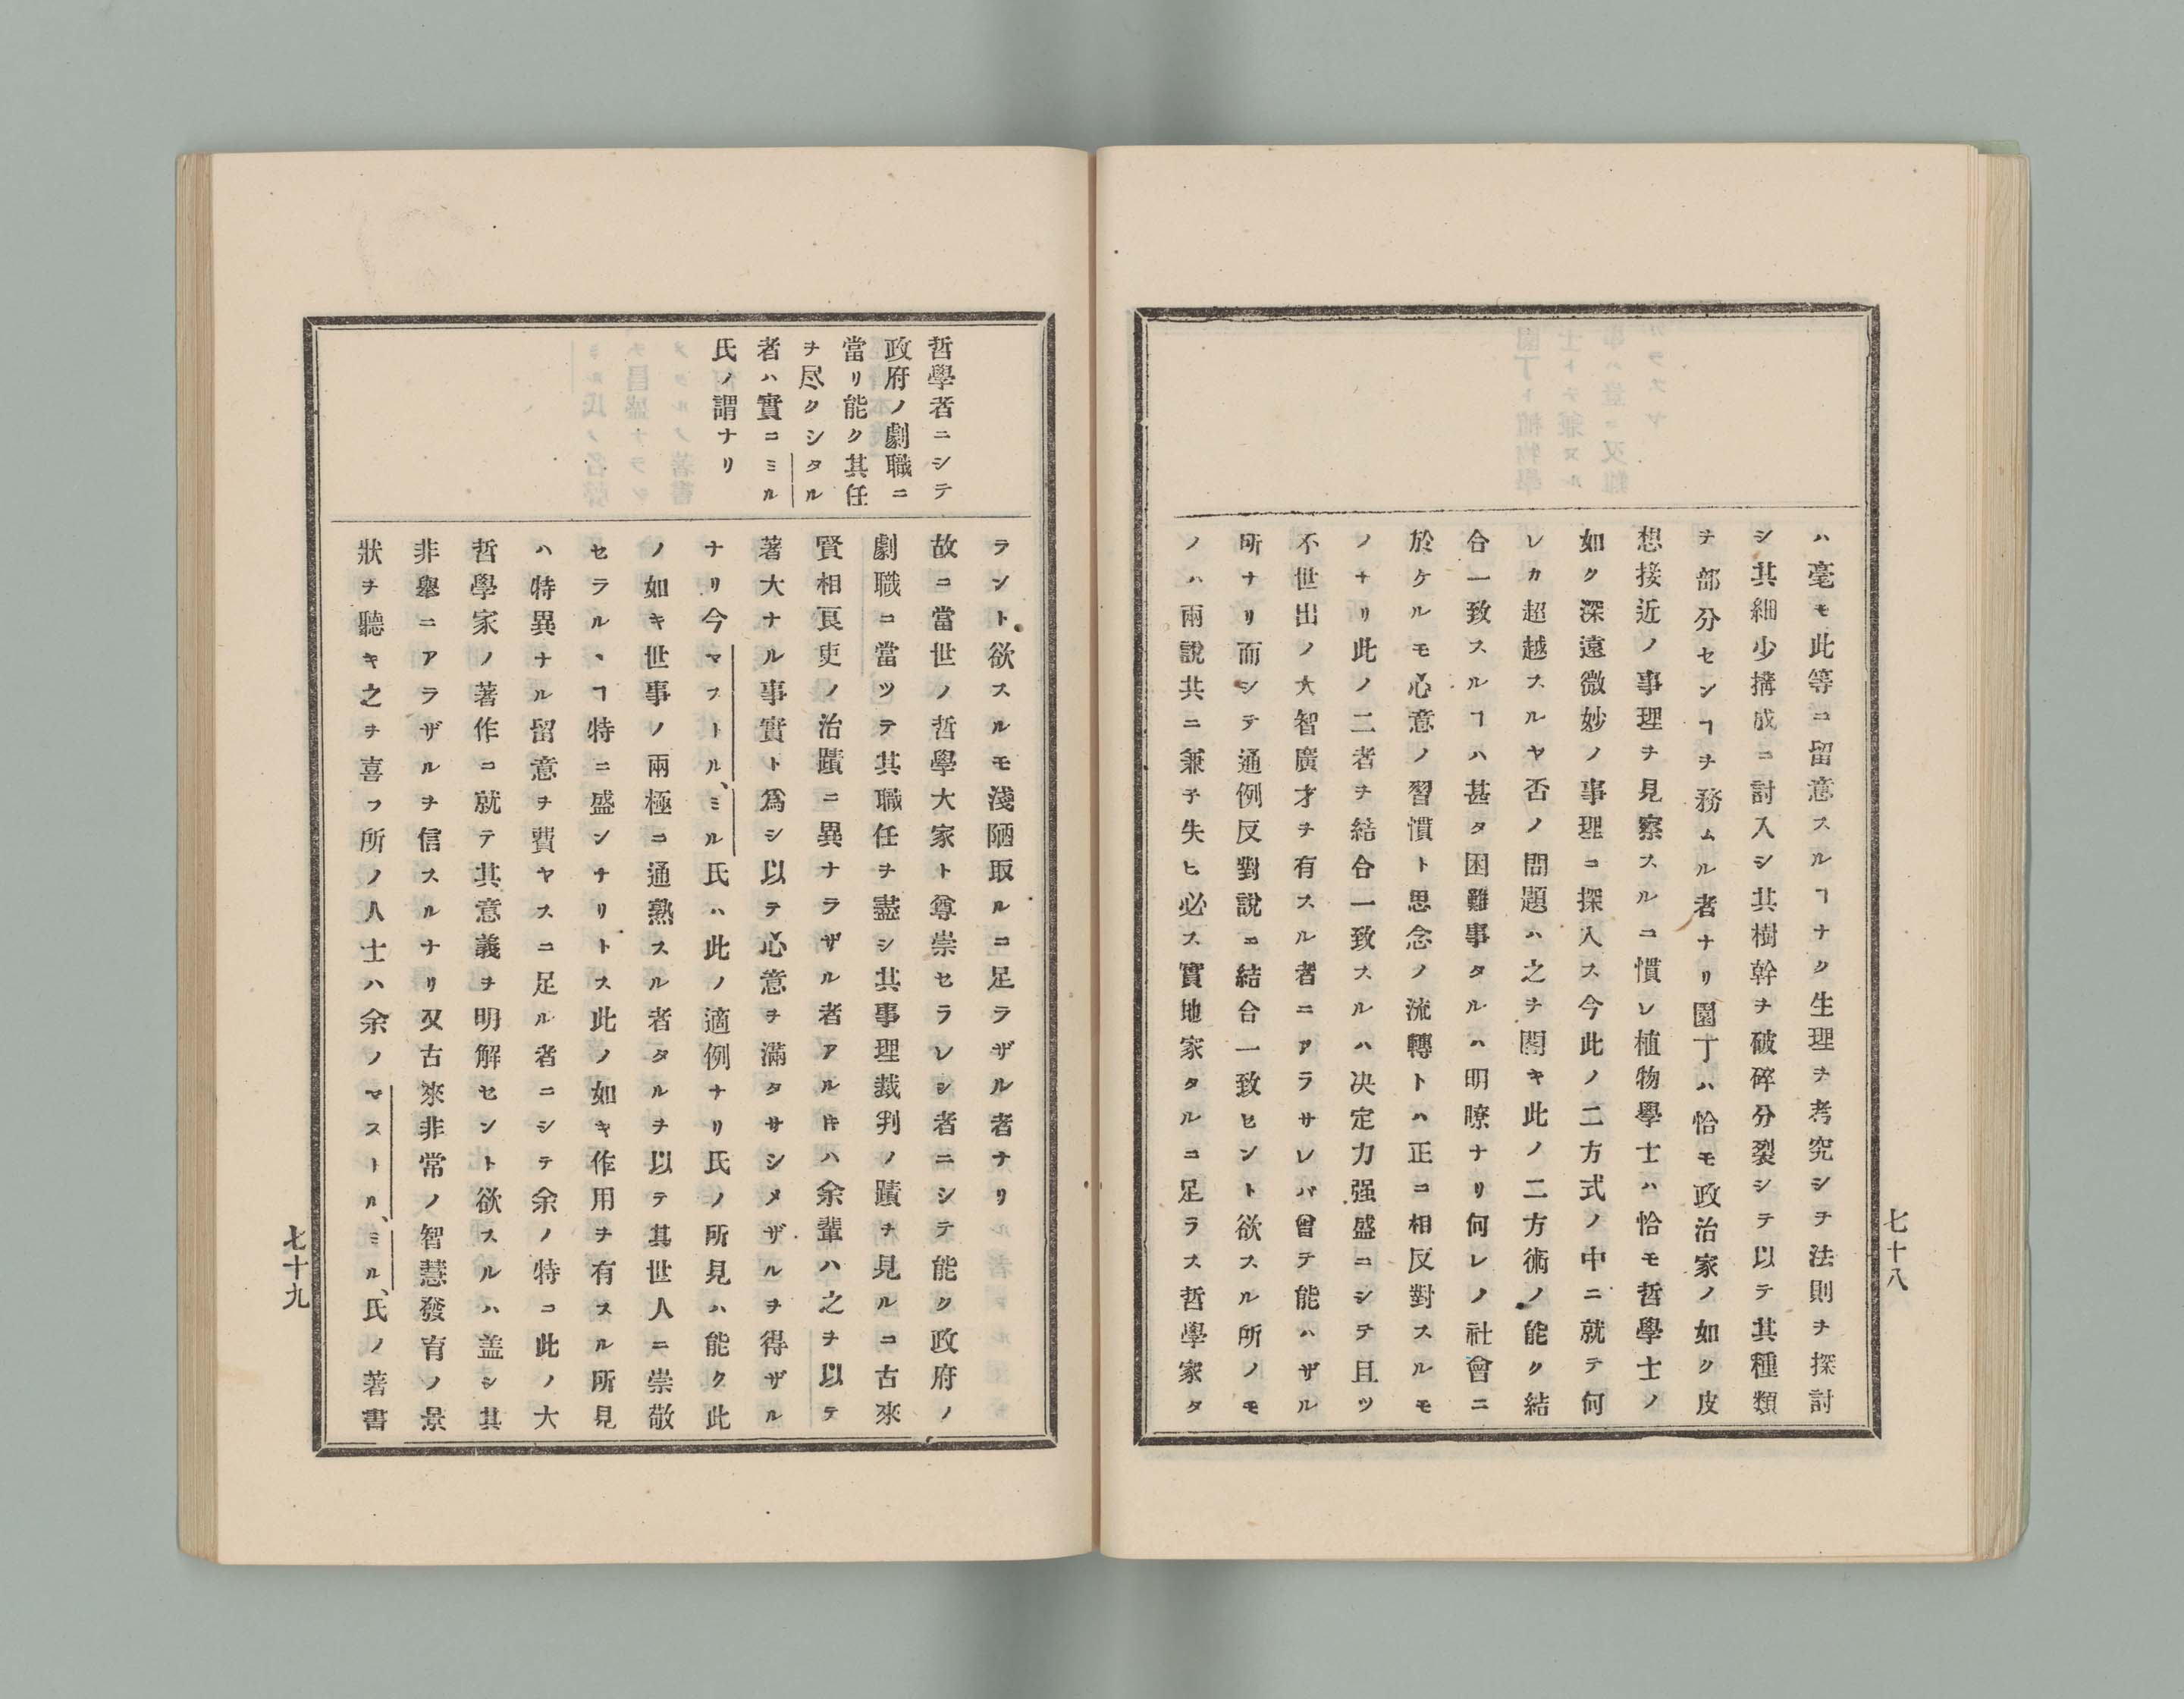 ハ毫モ此等ニ留意スルヿナク生理ヲ考究シヲ法則ヲ探討
シ其細少搆成ニ討入シ其樹幹ヲ破碎分裂シテ以テ其種類
ヲ部分センヿヲ務ムル者ナリ園丁ハ恰モ政治家ノ如ク皮
想接近ノ事理ヲ見察スルニ慣レ植物學士ハ恰モ哲學士ノ
如ク深遠微妙ノ事理ニ探入ス今此ノ二方式ノ中ニ就テ何
レカ超越スルヤ否ノ問題ハ之ヲ閣キ此ノ二方術ノ能ク結
合一致スルヿハ甚タ困難事タルハ明瞭ナリ何レノ社會ニ
於ケルモ心意ノ習慣ト思念ノ流轉トハ正ニ相反對スルモ
ノナリ此ノ二者ヲ結合一致スルハ决定力强盛ニシテ且ツ
不世出ノ大智廣才ヲ有スル者ニアラサレバ曾テ能ハザル
所ナリ而シテ通例反對說ニ結合一致ヒント欲スル所ノモ
ノハ兩說共ニ兼子失ヒ必ス實地家タルニ足ラス哲學家タ
七十八
哲學者ニシテ
政府ノ劇職ニ
當リ能ク其任
ヲ尽クシタル
者ハ實ニミル
氏ノ謂ナリ
ラント欲スルモ淺陋取ルニ足ラザル者ナリ
故ニ當世ノ哲學大家ト尊崇セラレシ者ニシテ能ク政府ノ
劇職ニ當ツテ其職任ヲ盡シ其事理裁判ノ蹟ヲ見ルニ古來
賢相良吏ノ治蹟ニ異ナラザル者アル𪜈ハ余輩ハ之ヲ以テ
著大ナル事實ト爲シ以テ心意ヲ滿タサシメザルヲ得ザル
ナリ今マストル、ミル氏ハ此ノ適例ナリ氏ノ所見ハ能ク此
ノ如キ世事ノ兩極ニ通熟スル者タルヲ以テ其世人ニ崇敬
セラルヽヿ特ニ盛ンナリトス此ノ如キ作用ヲ有スル所見
ハ特異ナル留意ヲ費ヤスニ足ル者ニシテ余ノ特ニ此ノ大
哲學家ノ著作ニ就テ其意義ヲ明解セント欲スルハ盖シ其
非擧ニアラザルヲ信スルナリ又古來非常ノ智慧發育ノ景
狀ヲ聽キ之ヲ喜フ所ノ人士ハ余ノマストル、ミル、氏ノ著書
七十九